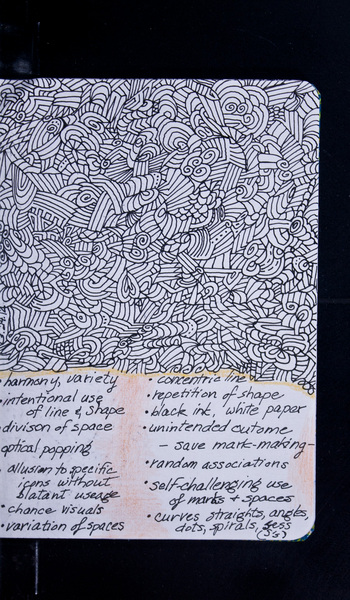 • harmony, variety
• intentional use
of line & shape
• divison of space
optical popping
• allusion to specific
icons without
blatant useage
• chance visuals
• variation of spaces
• concentric line
• repetition of shape
• black ink, white paper
• unintended outome
- save mark-making -
• random associations
• self-challenging use
of marks + spaces
• curves straights, angles,
dots, spirals,